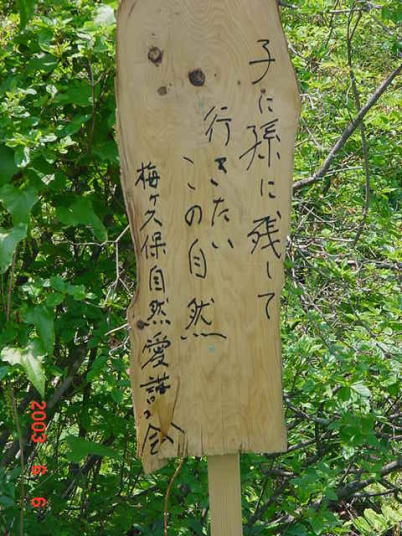 子に孫に残して
行きたい
この自然
梅ヶ久保自然愛護の会
2003 6 6